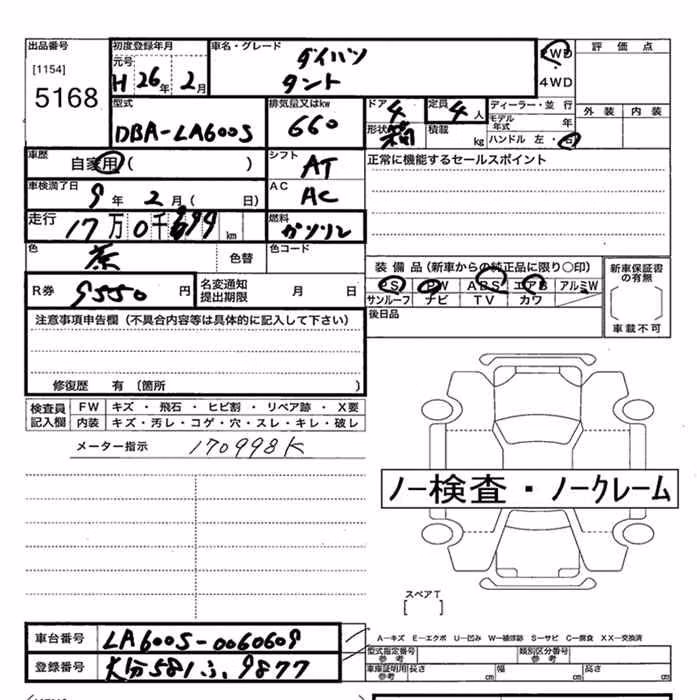 出品番号
[1154]
5168
初度登録年月
元号
H 26年 2月
車名・グレード
ダイハツ
タント
2WD
4WD
評価点
外装 内装
型式
DBA-LA600S
排気量又はkw
660
ドア 4
形状 箱
定員 4人
積載 kg
ディーラー・並行
モデル年式 年
ハンドル 左・右
車歴
自家用 ( )
シフト
AT
正常に機能するセールスポイント
車検満了日
9年 2月 ( 日)
AC
AC
走行
17万0千
km
燃料
ガソリン
色
茶
色替
色コード
R券
9550円
名変通知
提出期限
月 日
装備品 (新車からの純正品に限り○印)
PS PW ABS エアB アルミW
サンルーフ ナビ TV カワ
後日品
新車保証書
の有無
車載不可
注意事項申告欄 (不具合内容等は具体的に記入して下さい)
修復歴 有 〔箇所 〕
検査員
記入欄
FW キズ・飛石・ヒビ割・リペア跡・X要
内装 キズ・汚レ・コゲ・穴・スレ・キレ・破レ
メーター指示
170998K
ノー検査・ノークレーム
スペアT
[ ]
車台番号
LA600S-0060609
登録番号
大分581ふ9877
A−キズ E−エクボ U−凹み W−補修跡 S−サビ C−腐食 XX−交換済
型式指定番号
参考
類別区分番号
参考
車庫証明用
参考
長さ cm 幅 cm 高さ cm